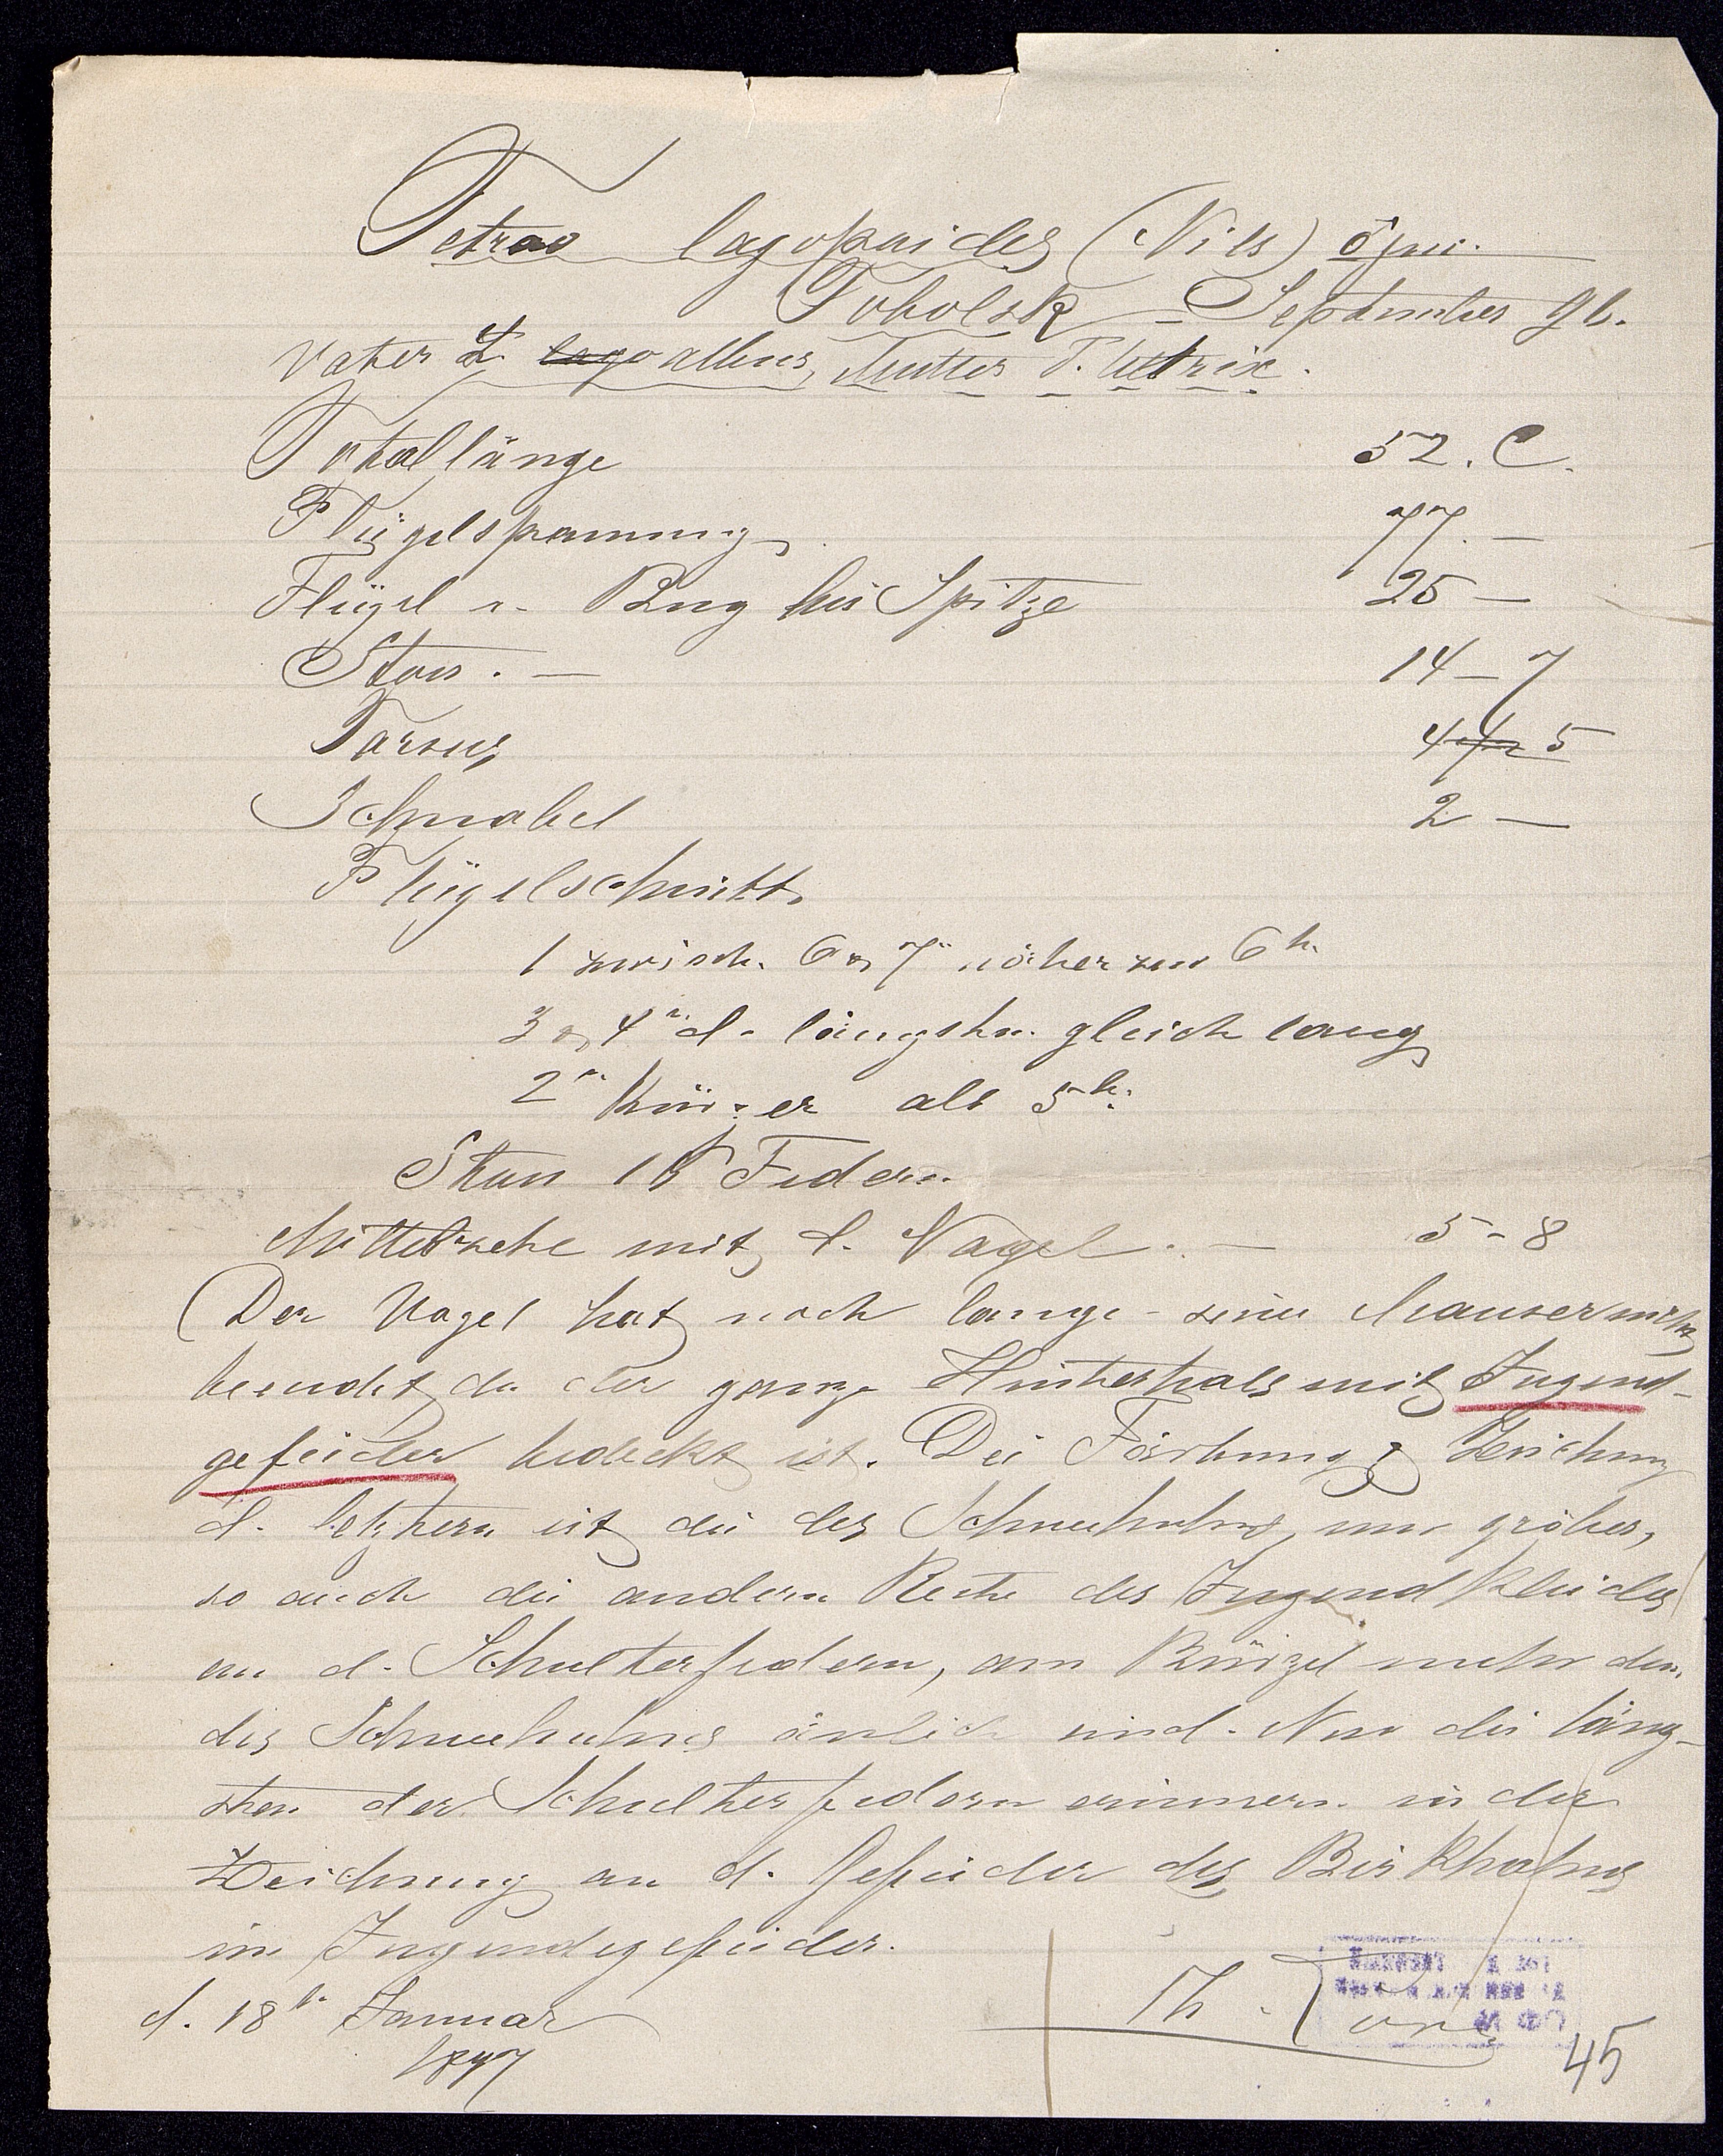 Tetrao lagopoides (Nils) ♂ juv.
Tobolsk - September 96.
Vater L. albus, Mutter T. tetrix.
Totallänge 52. C.
Flügelspannung 77. —
Flügel v. Bug bis Spitze 25 —
Stoss. — 14 - 7
Tarsus 4 5
Schnabel 2 —
Flügelschnitt,
1 zwisch. 6 & 7n näher zur 6tn.
3 & 4n d. längsten gleich lang
2n Kürzer als 5tn.
Stoss 18 Federn
Mittelzehe mit d. Nagel. — 5 - 8
Der Vogel hat noch lange seine Mauser nicht
beendet, da der ganze Hinterhals mit Jugend-
gefieder bedeckt ist. Die Färbung & Zeichnung
d. letztern ist die des Schneehuhns, nur gröber,
so auch die andern Reste des Jugend Kleides
an d. Schulterfedern, am Bürzel mehr dem
des Schneehuhns änlich sind. Nur die läng-
sten der Schulterfedern erinnern in der
Zeichnung an d. Gefieder des Birkhuhns
im Jugendgefieder.
d. 18tn Januar
1897
Th.
45